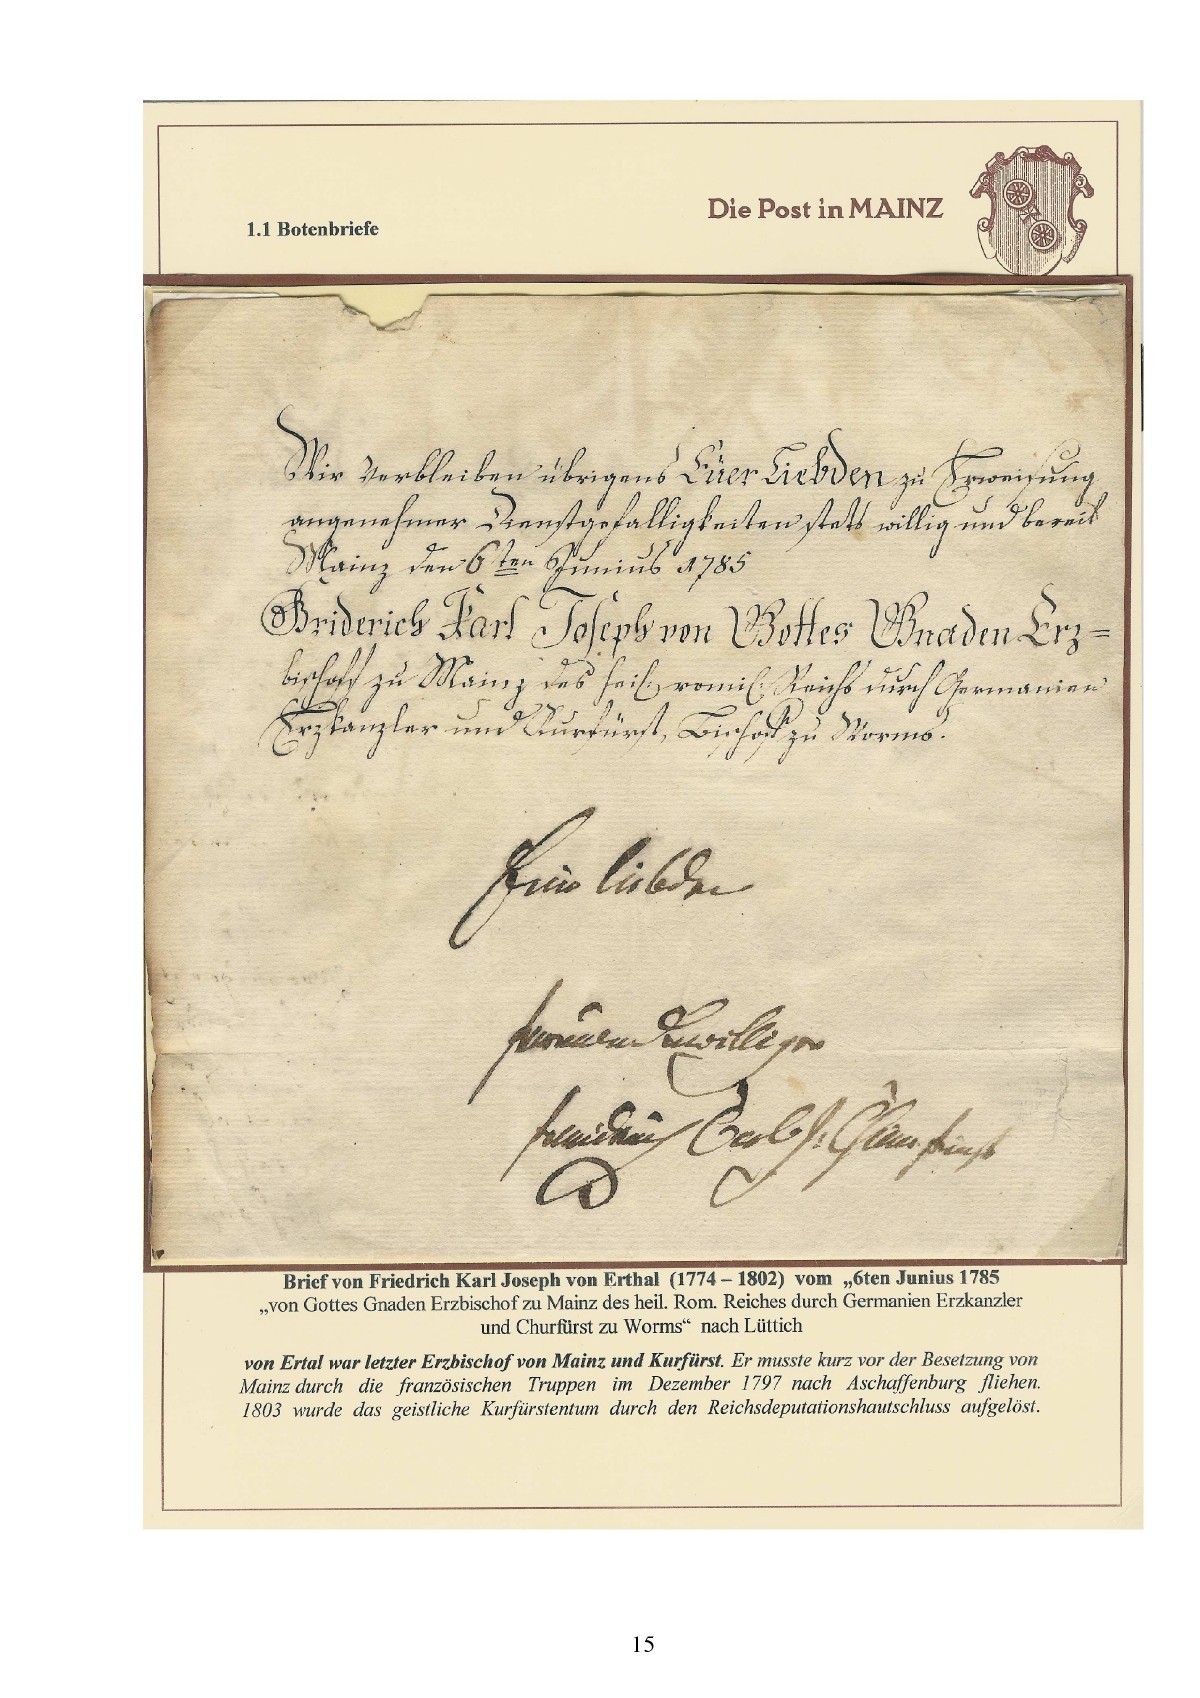 1.1 Botenbriefe
Die Post in MAINZ
Wir Verbleiben übrigens Eüer Liebden zu Erweisung
angenehmer Dienstgefälligkeiten stets willig und bereit
Mainz den 6ten Junius 1785
Friderich Karl Joseph von Gottes Gnaden Erz=
bischoff zu Mainz des heil: romis: Reichs durch Germanien
Erzkanzler und Kurfürst, Bischof zu Worms.
liebden
Brief von Friedrich Karl Joseph von Erthal (1774 – 1802) vom „6ten Junius 1785
„von Gottes Gnaden Erzbischof zu Mainz des heil. Rom. Reiches durch Germanien Erzkanzler
und Churfürst zu Worms“ nach Lüttich
von Ertal war letzter Erzbischof von Mainz und Kurfürst. Er musste kurz vor der Besetzung von
Mainz durch die französischen Truppen im Dezember 1797 nach Aschaffenburg fliehen.
1803 wurde das geistliche Kurfürstentum durch den Reichsdeputationshautschluss aufgelöst.
15